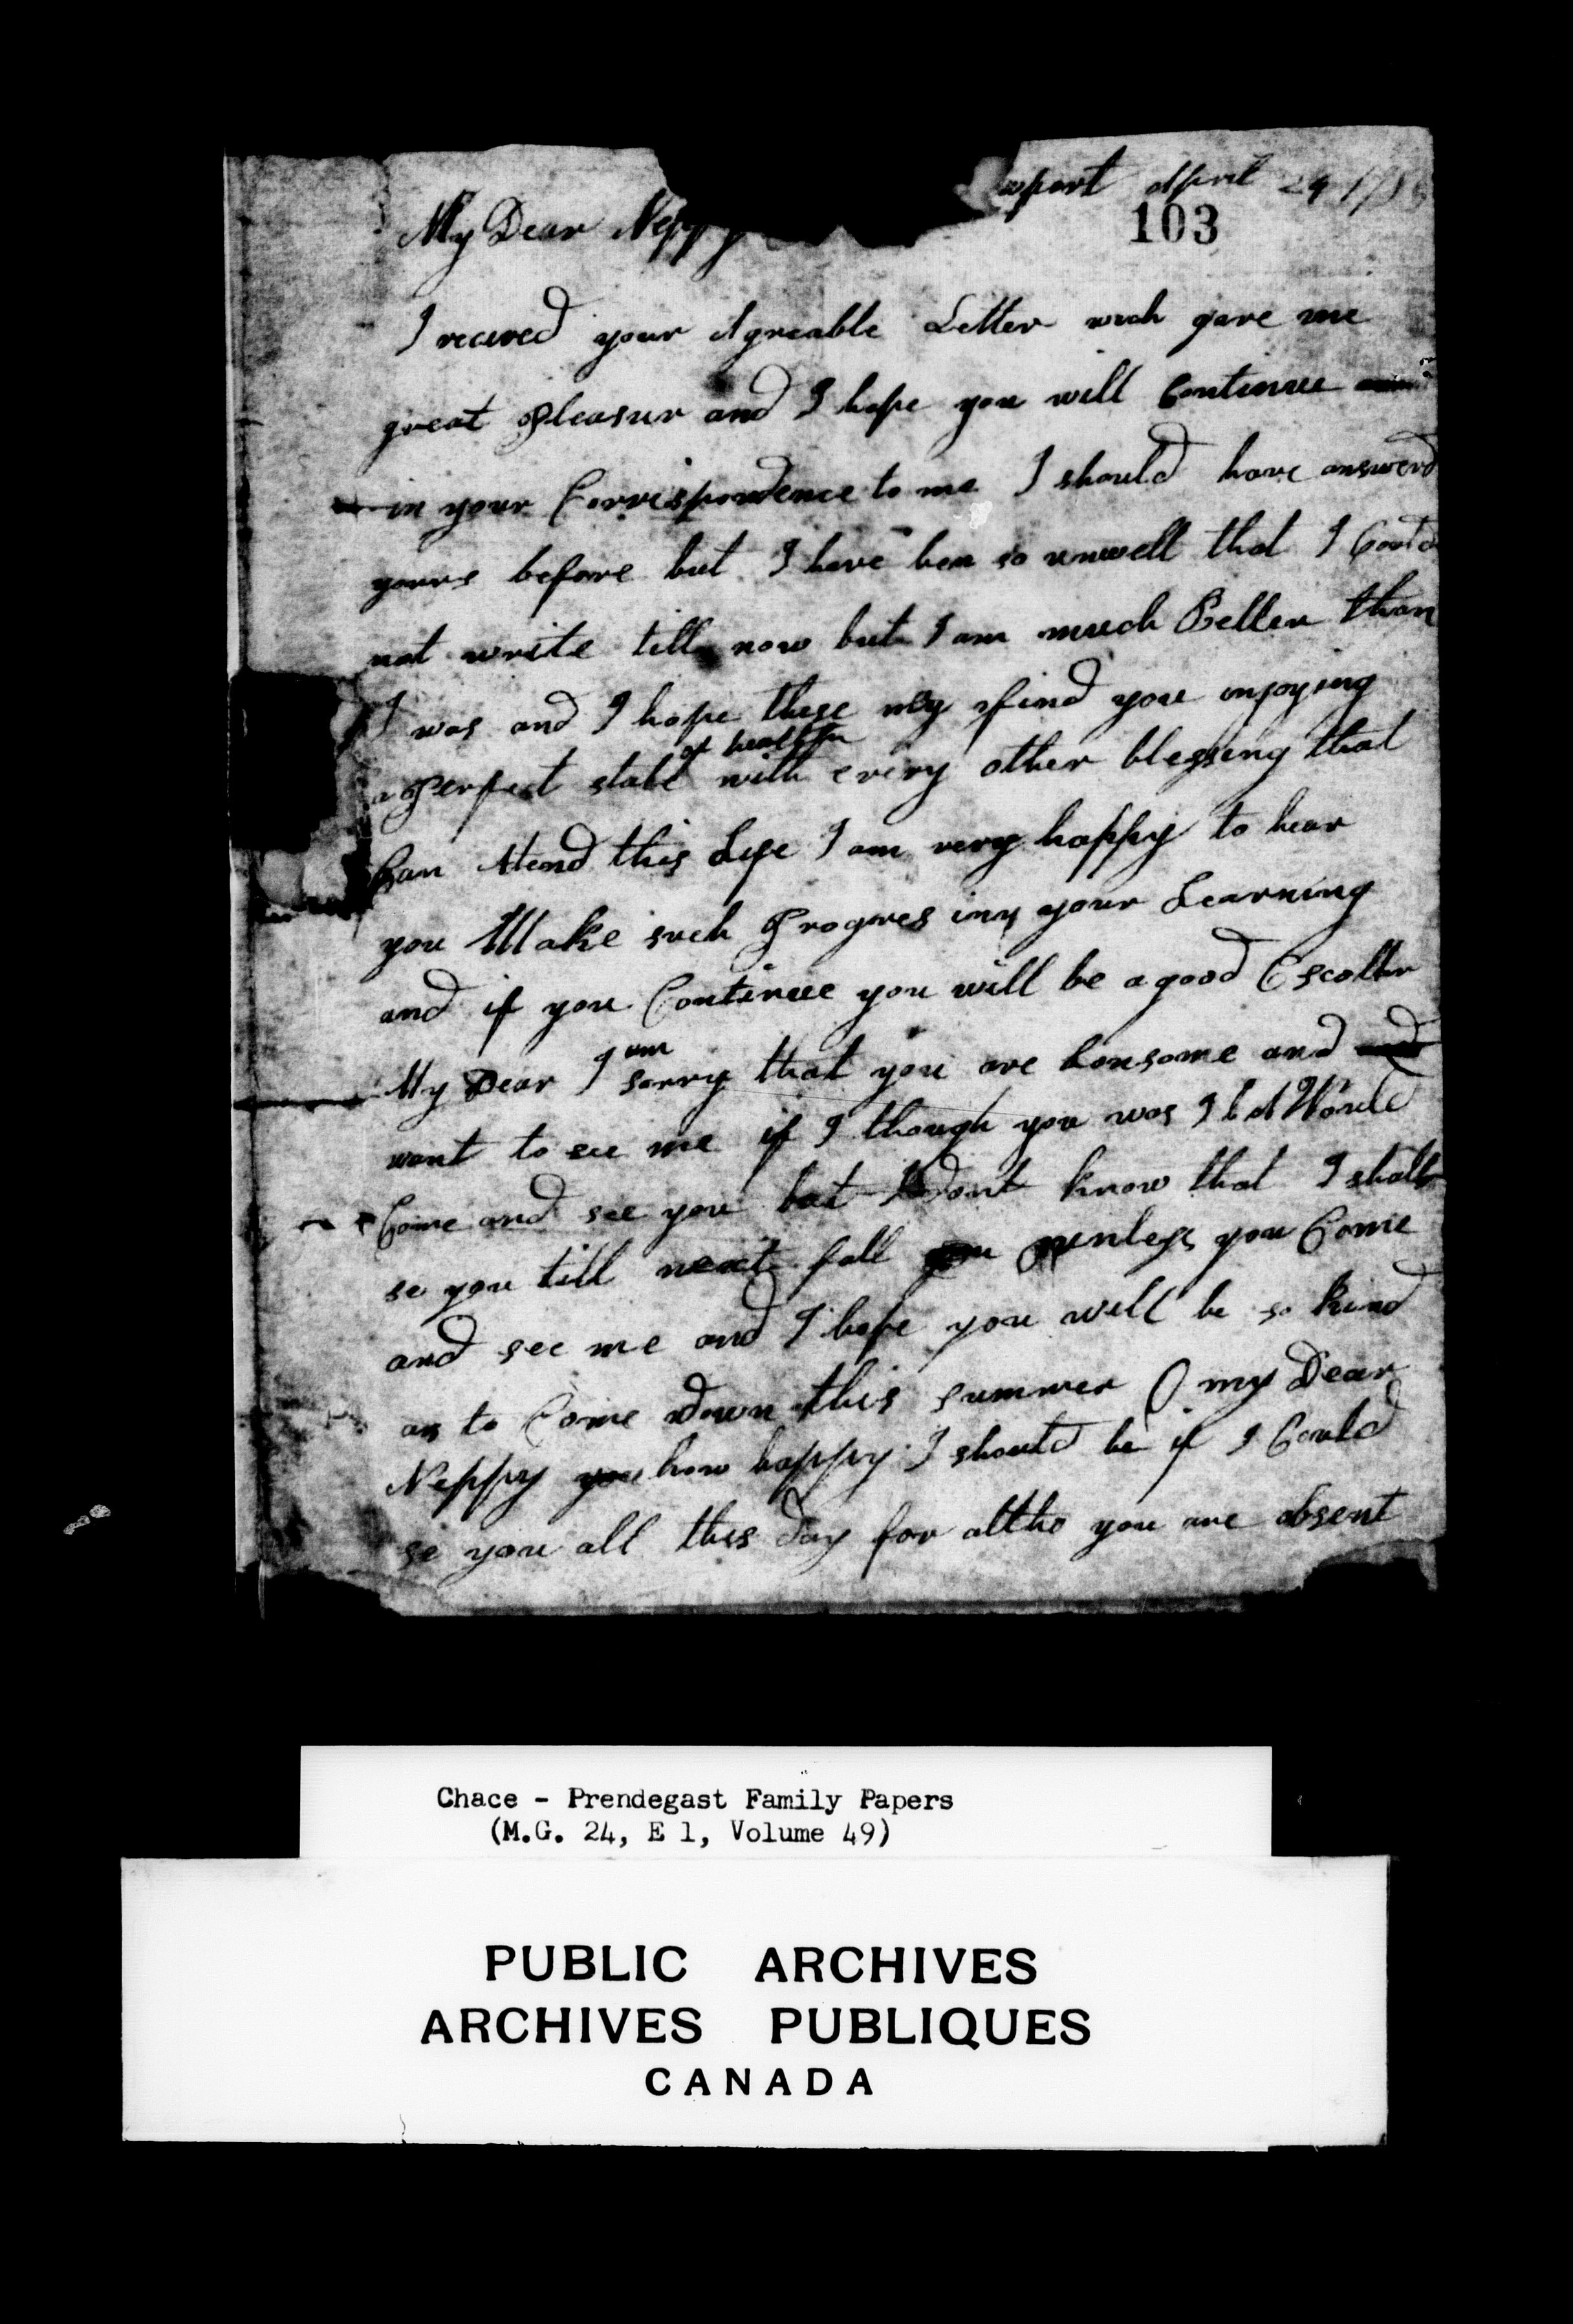 wport April 29 17
103
My Dear Neppy
I receved your Agreable Letter wich gave me
great Pleasur and I hope you will Continue
in your Corrispondence to me I should have answerd
yours before but I have ben so unwell that I Could
not write till now but I am much Better than
I was and I hope these my find you injoying
of health
a Perfect state with every other blessing that
Can Atend this Life I am very happy to hear
you Make such Progres in your Learning
and if you Continue you will be a good Escoller
am
My Dear I sorry that you are Lonsome and and
want to see me if I though you was I Would
Come and see you but I Dont know that I shall
se you till next fall unless you Come
and see me and I hope you will be so kind
as to Come Down this summer O my Dear
Neppy you how happy I should be if I Could
se you all this Day for altho you are absent
Chace - Prendegast Family Papers
(M.G. 24, E 1, Volume 49)
PUBLIC ARCHIVES
ARCHIVES PUBLIQUES
CANADA